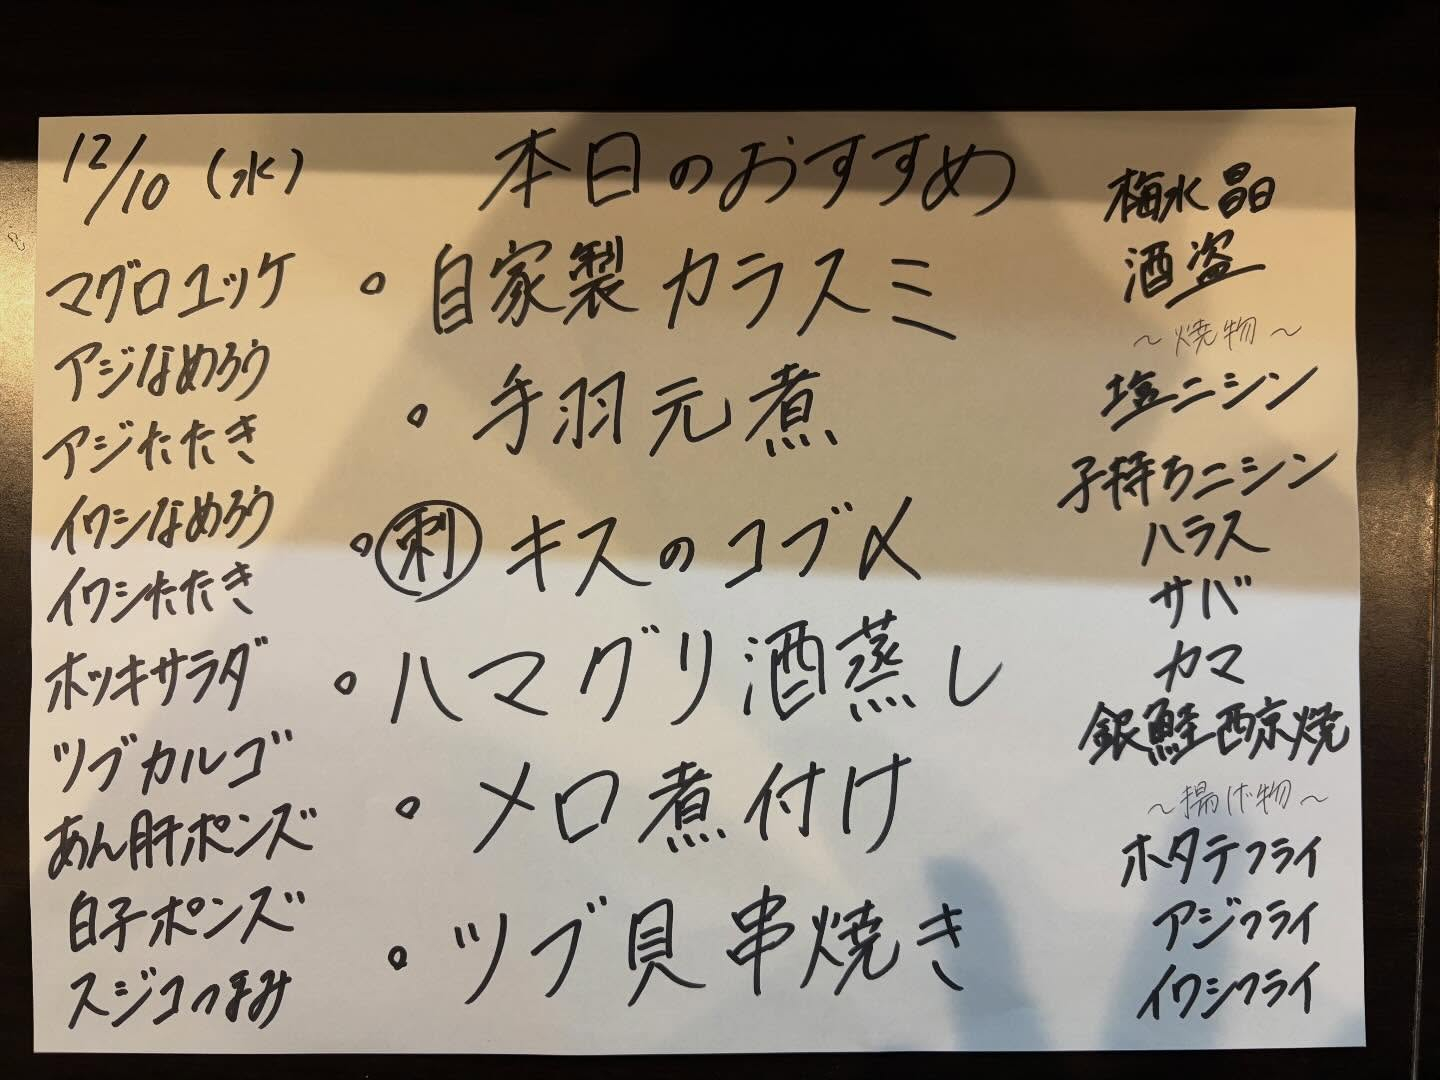 12/10 (水)
マグロユッケ
アジなめろう
アジたたき
イワシなめろう
イワシたたき
ホッキサラダ
ツブカルゴ
あん肝ポンズ
白子ポンズ
スジコつまみ
本日のおすすめ
・自家製カラスミ
・手羽元煮
・刺 キスのコブ〆
・ハマグリ酒蒸し
・メロ煮付け
・ツブ貝串焼き
梅水晶
酒盗
～焼物～
塩ニシン
子持ちニシン
ハラス
サバ
カマ
銀鮭西京焼
～揚げ物～
ホタテフライ
アジフライ
イワシフライ